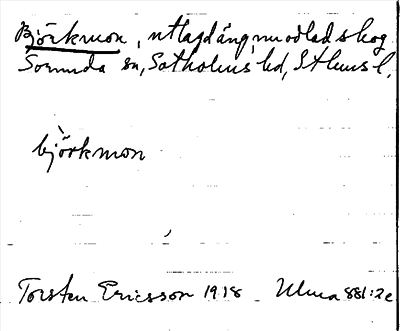 Björkmon, utlagd äng, nu odlad skog
Sorunda sn, Sotholms hd, Sthlms l,
bjö̀rkmon
Torsten Ericsson 1918 Ulma 881:2c